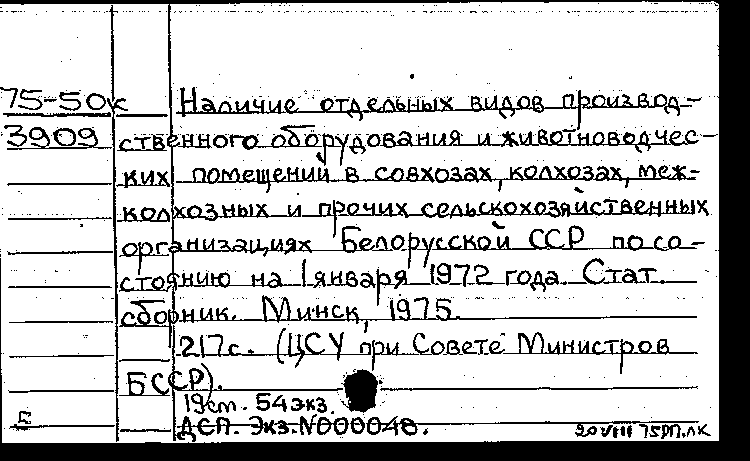 75-50к Наличие отдельных видов производ-
3909 ственного оборудования и животноводчес-
ких помещений в совхозах, колхозах, меж-
колхозных и прочих сельскохозяйственных
организациях Белорусской ССР по со-
стоянию на 1 января 1972 года. Стат.
сборник. Минск, 1975.
217с. (ЦСУ при Совете Министров
БССР).
19см. 54 экз.
ДСП. Экз.N000048.
20 VIII 75РП.ЛК